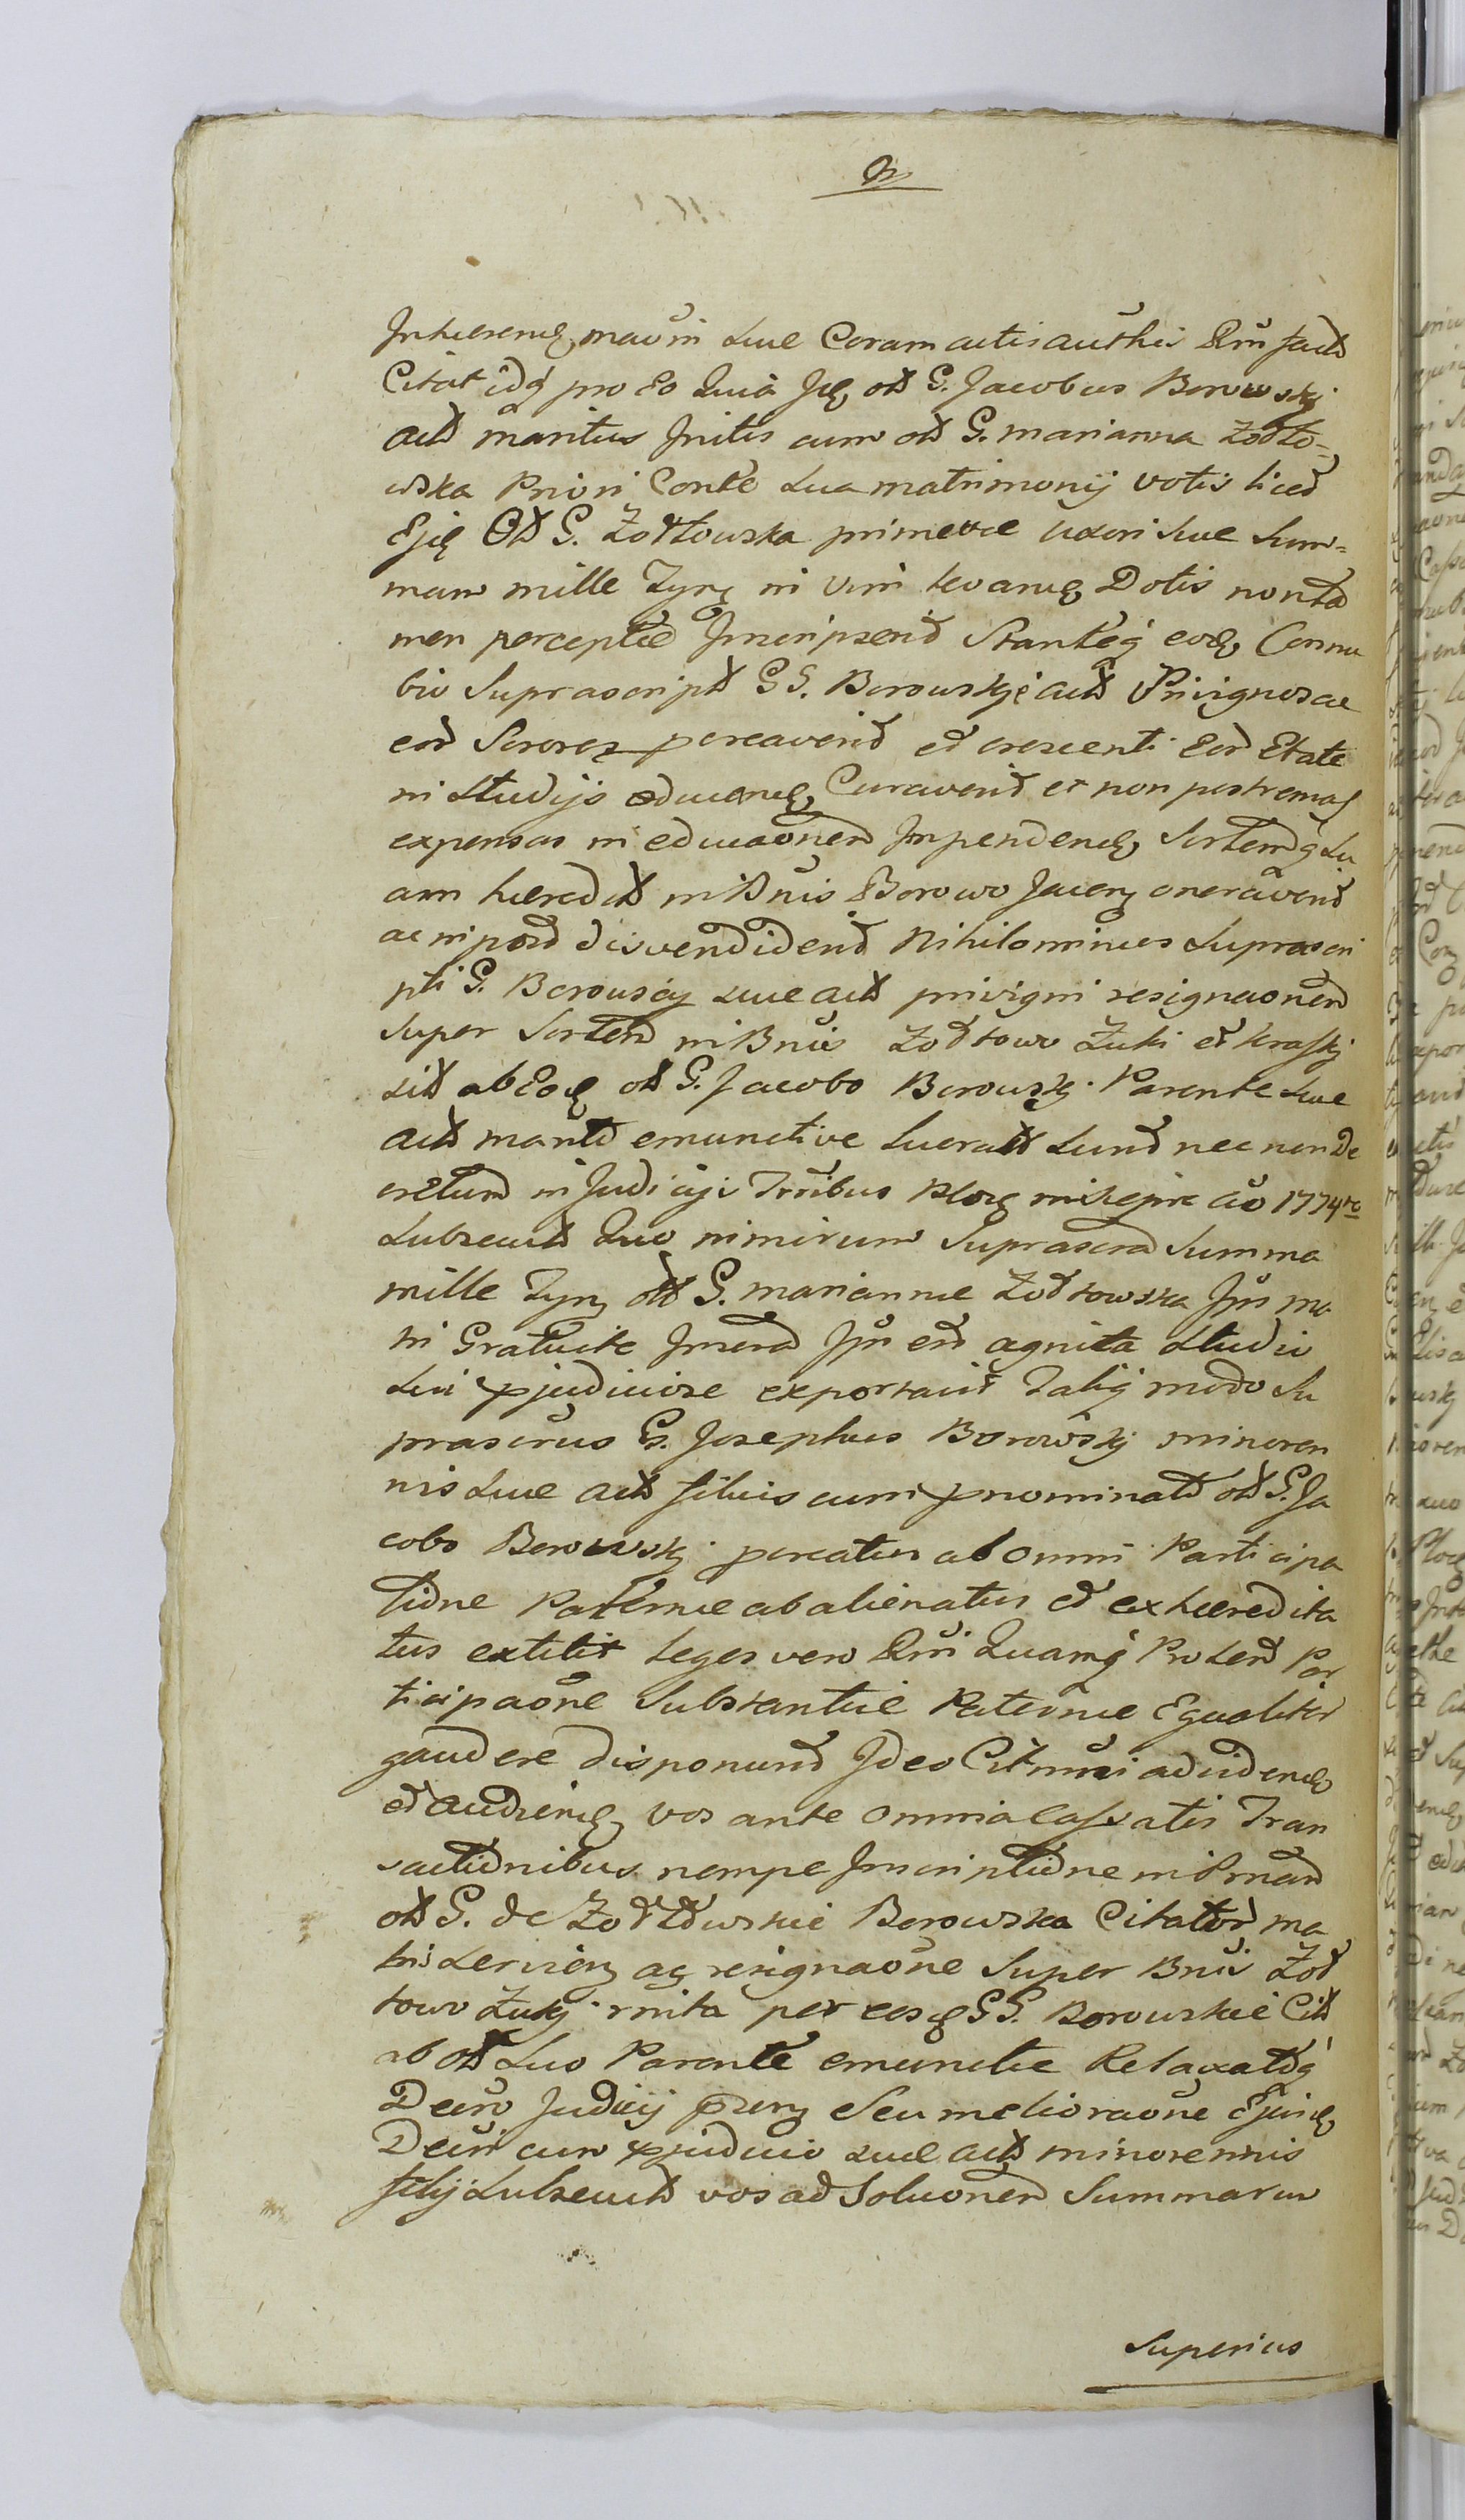 Inhaerend mauin suae Coram actis authis Rni fact
Citat idq pro eo Quia Is ol G. Jacobus Borowskj
act maritus Initis cum ol G. Marianna Zodto-
wska Priori Conte sua matrimonij votis licet
Ejs Ol G. Zodtowska primevae uxori suae sum=
mam mille Tynf in vim Dotis non ta
men perceptae Inscripserit Stanteq eod Connu
bio Suprascript GG. Borowskie act Privignos ac
eor Sorores percaverit et crescenti Eor Etate
in studijs educand Curaverit et non postremas
expensas in educaonem Impendend Sortemq su
am haeredit in Bnis Borowo Jacen oneraverit
ac in post disvendiderit Nihilominus suprascri
pti G. Borouscy suae act privigni resignaonem
super Sortem in Bnis Zodtowo Zuki et kraski
sit ab Eod ol G. Jacobo Borouskj Parente suae
act marito emunctive lucrati sunt nec non De
cretum in Judicijs Trnibus Plocen ao 1774to
Subsecut Quo nimirum Suprascra Summa
mille Tynf ol G. Mariannae Zodtowska Ips ma
tri Gratuite Inscra Ipi est agnita studio
sui pjudiciose exportavit Taliq modo Su
prascrus G. Josephus Borowskj minoren
nis suae act filius cum pnominato ol G. Ja
cobo Borowskj percatus ab omni Participa
tione Paternae abalienatus et exhaeredita
tus extitit Leges vero Rni Quamq Prolem Par
ticipaone Substantiae Paternae Equaliter
gaudere disponunt Ideo Citmini ad vidend
et audiend vos ante omnia Cassatis Tran
sactionibus nempe Inscriptione in Prnam
ol G. de Zodtowskie Borowska Citator ma
tris servien ac resignaone Super Bnis Zod
towo Zukj per eosd GG. Borowskie Cit
ab ol suo Parente emunctae Relaxatoq
Decro Judicij pzen Seu melioraone Ejusd
Decri cum pjudicio suae act minorennis
filij Subsecut vos ad Soluonem Summarum
Superius